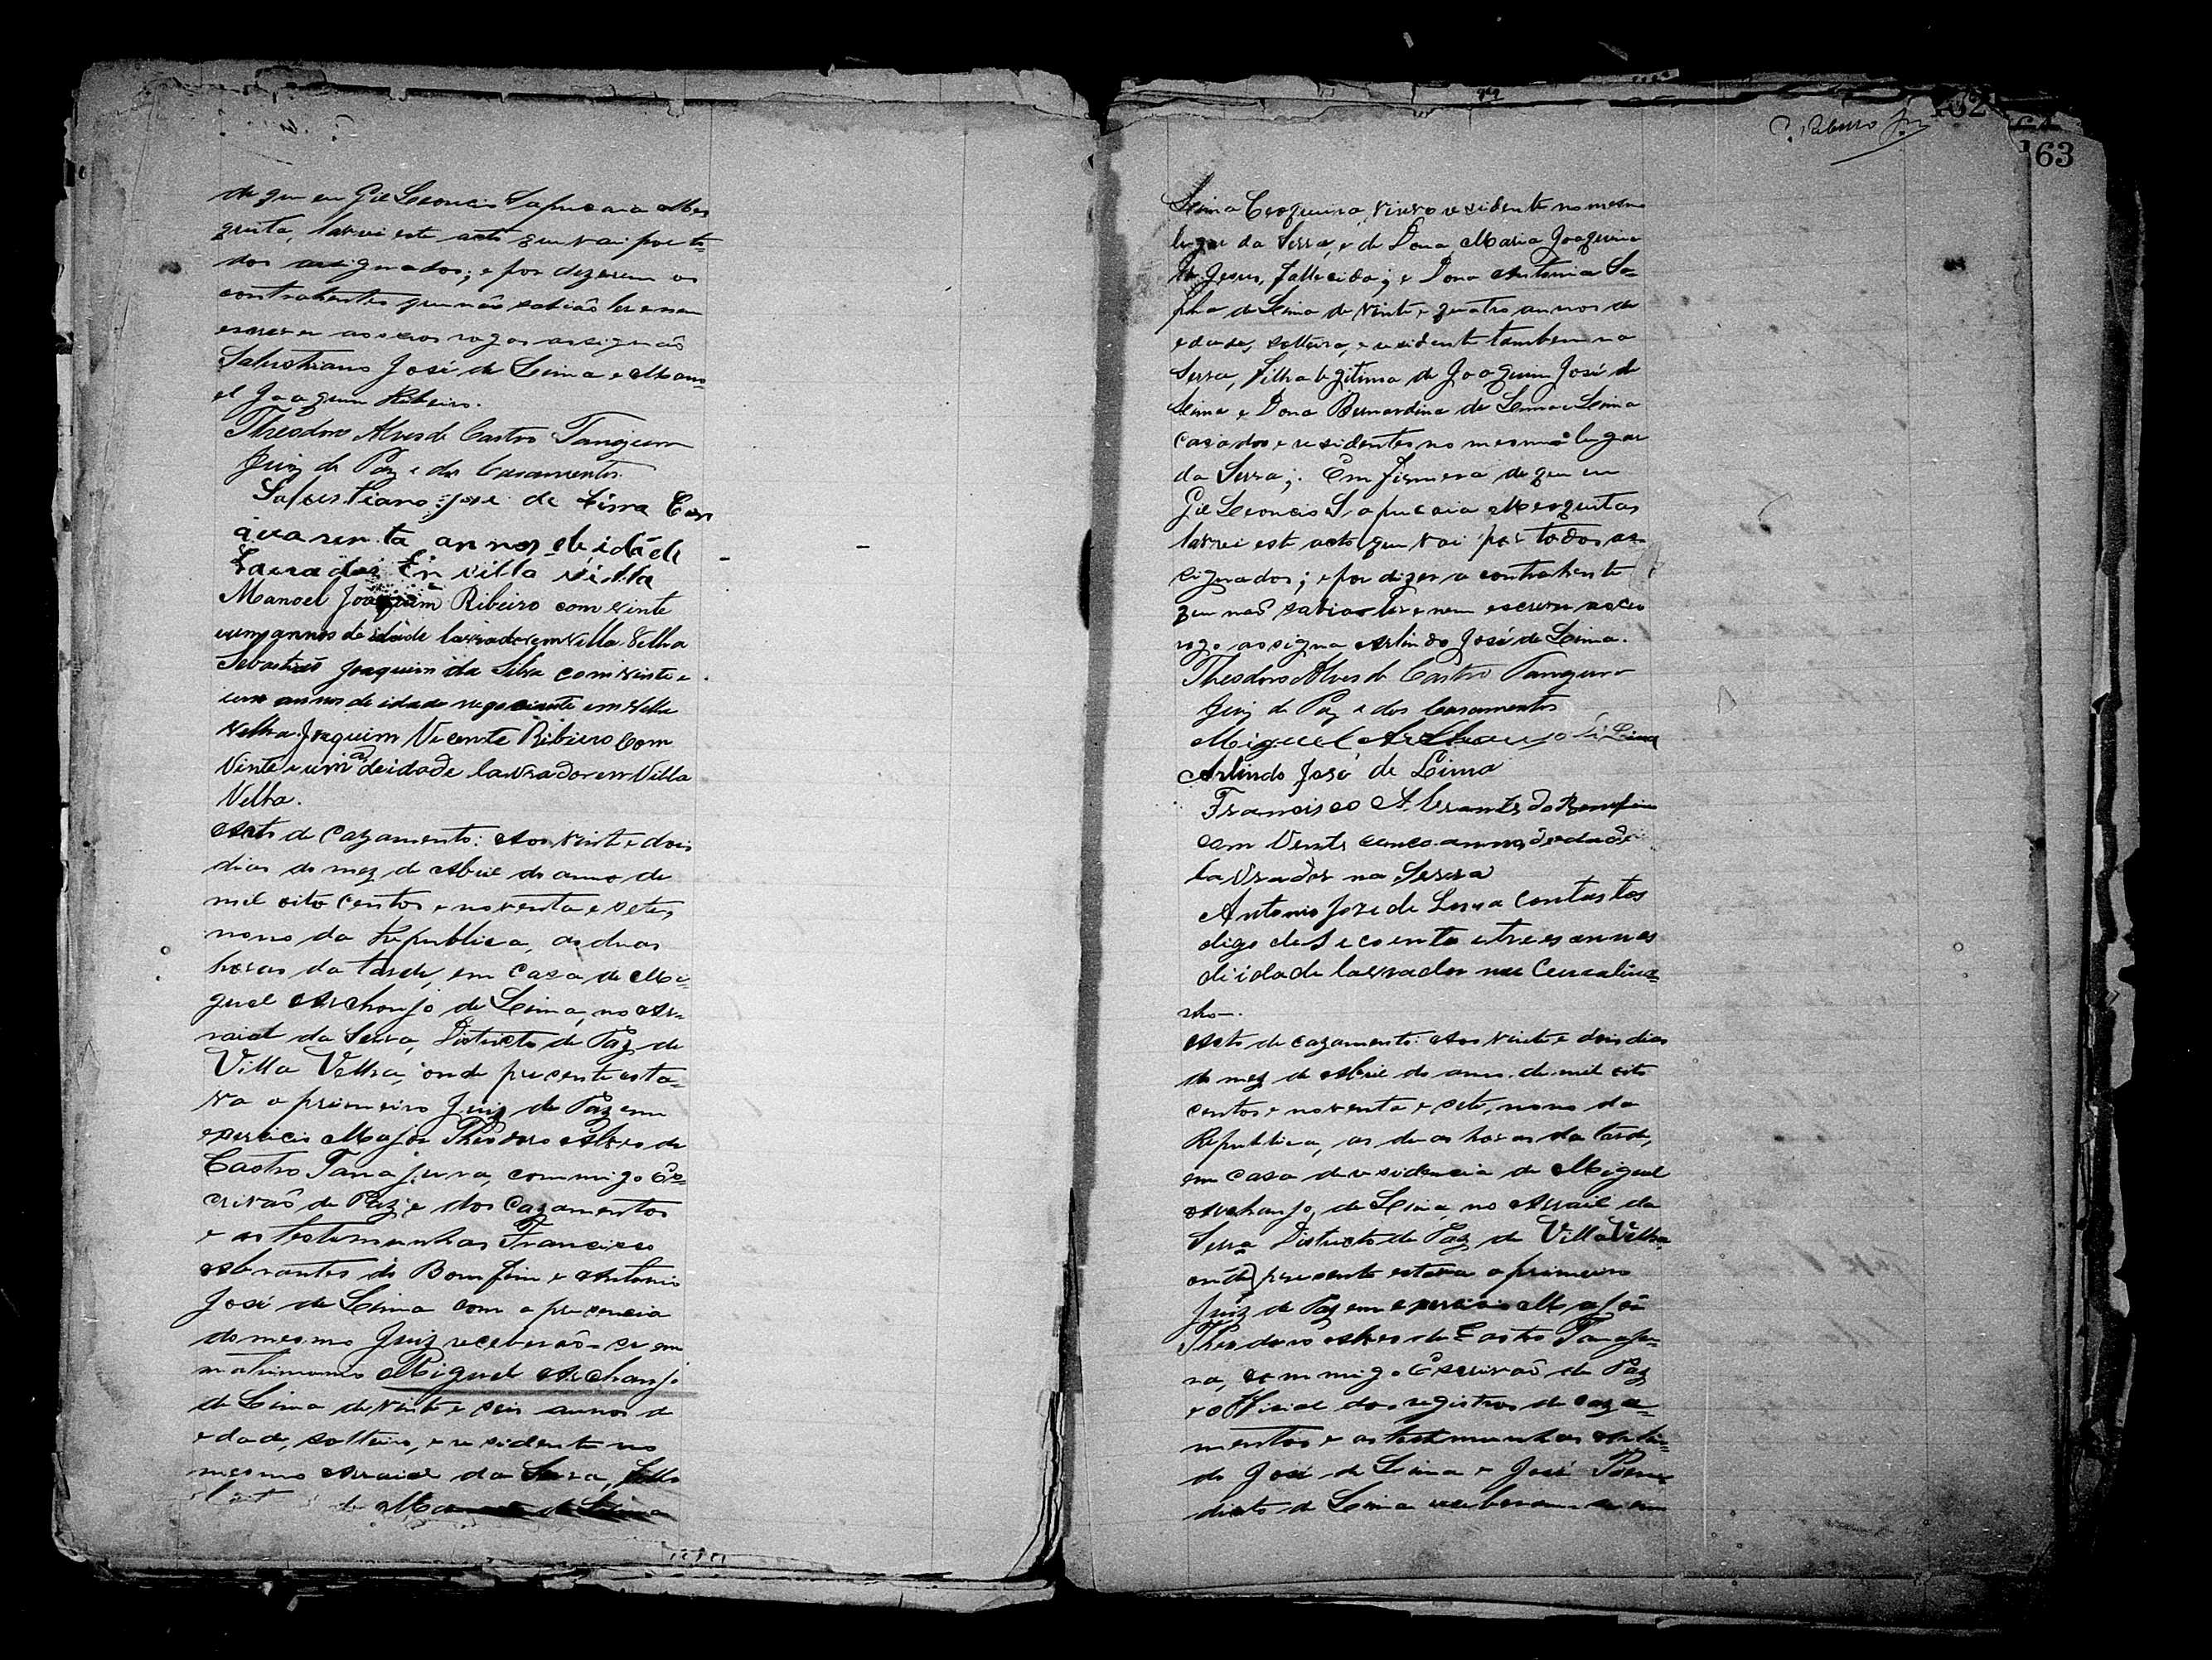 de que eu Gil Leoncio Sapucaia Mes
quita, lavrei este acto que vai por to=
dos assignados; e por dizerem os
contrahentes que não sabião ler e nem
escrever a seos rogos assignão
Salustiano José de Lima e Mano=
el Joaquim Ribeiro.
Theodoro Alves de Castro Tanajura
Juiz de Paz e dos Casamentos
Salustiano José de Lima Com
quarenta annos de idade
Lavrador Em villa villa
Manoel Joaquim Ribeiro com vinte
e um annos de idade lavrador em Villa Velha
Sebastião Joaquim da Silva com vinte e
um annos de idade negociante em Villa
Velha. Joaquim Vicente Ribeiro Com
Vinte e um a de idade lavrador em Villa
Velha.
Acto de Cazamento: Aos vinte e dois
dias do mez de Abril do anno de
mil oito centos e noventa e sete,
nono da Republica, as duas
horas da tarde, em Caza de Mi=
guel Archanjo de Lima, no Ar=
raial da Serra, Districto de Paz de
Villa Velha, onde presente esta=
va o primeiro Juiz de Paz em
exercicio Major Theodoro Alves de
Castro Tanajura, commigo Es=
crivão de Paz e dos Cazamentos
e as testemunhas Francisco
Abrantes do Bomfim e Antonio
José de Lima com a presencia
do mesmo Juiz receberão-se em
matrimonio Miguel Archanjo
de Lima de vinte e seis annos de
edade, solteiro, e residente no
mesmo Arraial da Serra, filho
de
P. Ribeiro Jr
162
163
Lima Cerqueira, viuvo residente no mesmo
lugar da Serra, e de Dona Maria Joaquina
de Jesus, fallecida; e Dona Antonia So=
phia de Lima de vinte e quatro annos de
edade, solteira, e residente tambem na
Serra, filha legitima de Joaquim José de
Lima e Dona Bernardina de Lima
casados e residentes no mesmo lugar
da Serra;. Em firmeza de que eu
Gil Leoncio Sapucaia Mesquitas
lavrei este acto que vai por todos as
signados; e por dizer a contrahente
que não sabia ler e nem escrever a seo
rogo assigna Arlindo José de Lima.
Theodoro Alves de Castro Tanajura
Juiz de Paz e dos Casamentos
Miguel Archanjo de Lima
Arlindo José de Lima
Francisco Abrantes do Bomfim
com Vinte cinco annos de edade
lavrador na Serra
Antonio Joze de Lima
digo de secoenta e tres annos
de idade lavrador no Curralin=
nho-.
Acto de cazamento: Aos vinte e dois dias
do mez de Abril do anno de mil oito
centos e noventa e sete, nono da
Republica, as duas horas da tarde,
em caza de residencia de Miguel
Archanjo de Lima, no Arraial da
Serra Districto de Paz de Villa Velha,
onde presente estava o primeiro
Juiz de Paz em exercicio Major
Theodoro Alves de Castro Tanaju=
ra, commigo Escrivão de Paz
e official dos registros de caza=
mentos e as testemunhas Arlin=
do José de Lima e José Bene
dicto de Lima receberam se em